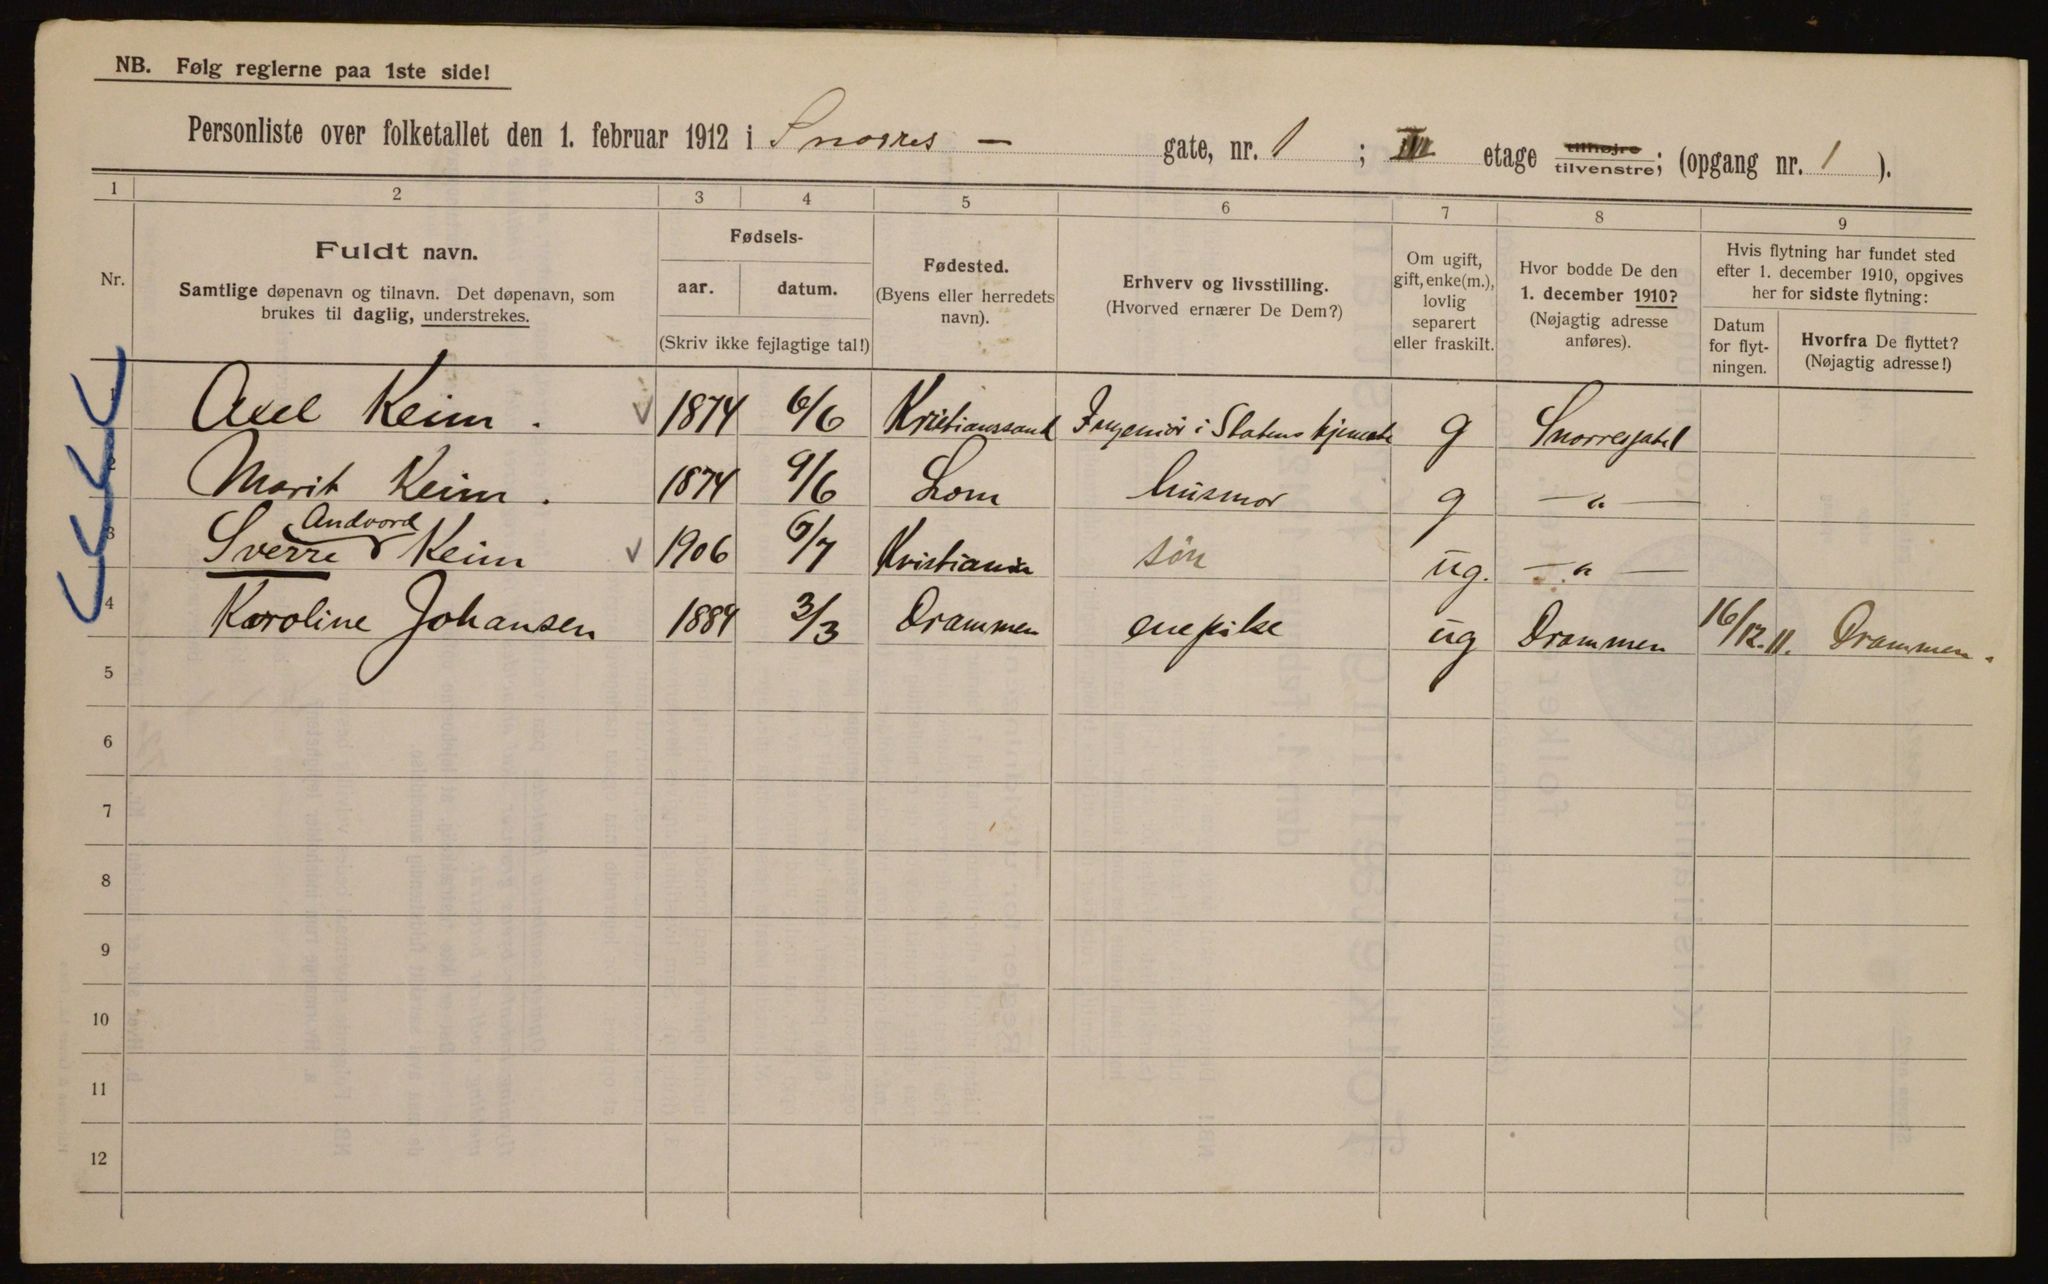 NB. Følg reglerne paa 1ste side!
Personliste over folketallet den 1. februar 1912 i Snorres — gate, nr. 1 ; III etage tilhøjre tilvenstre; (opgang nr. 1 ).
1 2 3 4 5 6 7 8 9
Nr.
Fuldt navn.
Samtlige døpenavn og tilnavn. Det døpenavn, som
brukes til daglig, understrekes.
Fødsels-
aar. datum.
(Skriv ikke fejlagtige tal!)
Fødested.
(Byens eller herredets
navn).
Erhverv og livsstilling.
(Hvorved ernærer De Dem?)
Om ugift,
gift, enke(m.),
lovlig
separert
eller fraskilt.
Hvor bodde De den
1. december 1910?
(Nøjagtig adresse
anføres).
Hvis flytning har fundet sted
efter 1. december 1910, opgives
her for sidste flytning:
Datum
for flyt-
ningen.
Hvorfra De flyttet?
(Nøjagtig adresse!)
Axel Keim. 1874 6/6 Kristianssand Ingeniør i Statens tjeneste g Snorresgate 1
2 Marit Keim. 1874 9/6 Lom husmor g — " —
Andvord
3 Sverre Keim 1906 /7 Kristiania søn ug. — " —
4 Karoline Johansen 1889 3/3 Drammen enepike ug Drammen 16/12.11. Drammen.
5
6
7
8
9
10
11
12